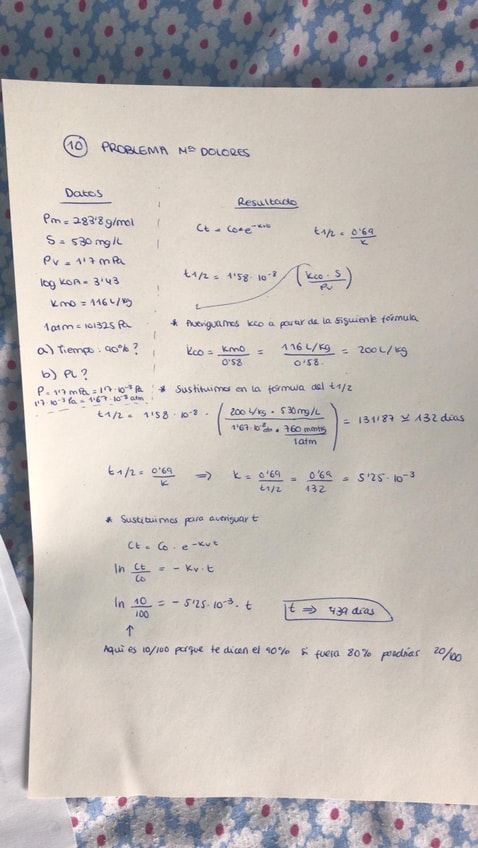 10 PROBLEMA Mª DOLORES
Datos
Pm = 283'8 g/mol
S = 530 mg/L
Pv = 1'7 mPa
log KOA = 3'43
Kmo = 116 L/kg
1atm = 101325 Pa
a) Tiempo. 90%?
b) PL?
P = 1'7 mPa = 1'7·10⁻³ Pa
1'7·10⁻³ Pa = 1'67·10⁻⁸ atm
Resultado
Ct = Co·e^(-K·t)    t1/2 = 0'69/K
t1/2 = 1'58·10⁻⁸ (Kco · S / Pv)
* Averiguamos Kco a partir de la siguiente fórmula
Kco = Kmo/0'58 = 116 L/kg / 0'58 = 200 L/kg
* Sustituimos en la fórmula del t1/2
t1/2 = 1'58 · 10⁻⁸ · (200 L/kg · 530 mg/L / 1'67·10⁻⁸ atm · 760 mmHg / 1 atm) = 131'87 ≃ 132 días
t1/2 = 0'69/K ⇒ K = 0'69/t1/2 = 0'69/132 = 5'25 · 10⁻³
* Sustituimos para averiguar t
Ct = Co · e^(-Kv·t)
ln Ct/Co = - Kv · t
ln 10/100 = - 5'25·10⁻³ · t    t ⇒ 439 días
↑
Aquí es 10/100 porque te dicen el 90% si fuera 80% pondrías 20/100